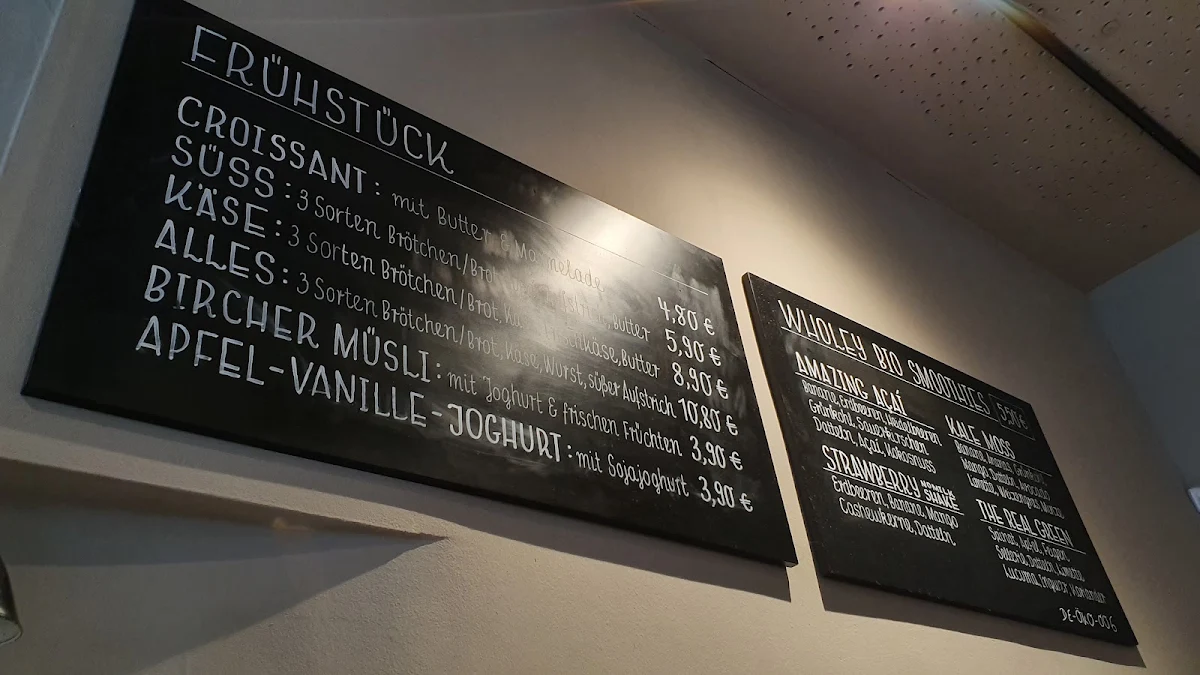 FRÜHSTÜCK
CROISSANT: mit Butter & Marmelade 4,80 €
SÜSS: 3 Sorten Brötchen/Brot, Aufstrich, Butter 5,90 €
KÄSE: 3 Sorten Brötchen/Brot, Butter 8,90 €
ALLES: 3 Sorten Brötchen/Brot, Käse, Wurst, süßer Aufstrich 10,80 €
BIRCHER MÜSLI: mit Joghurt & frischen Früchten 3,90 €
APFEL-VANILLE-JOGHURT: mit Sojajoghurt 3,90 €
WHOLEY BIO SMOOTHIES 5,50 €
AMAZING AÇAÍ
Banane, Erdbeeren, Heidelbeeren
Grünkohl, Sauerkirschen
Datteln, Açaí, Kokosnuss
STRAWBERRY
Erdbeeren, Banane, Mango
Cashewkerne, Datteln
KALE MOSS
Banane, Ananas, Grünkohl
Mango, Datteln, Avocado
Limette,
THE REAL GREEN
Spinat, Apfel, Feigen
Sellerie, Datteln, Limette
Lucuma, Ingwer, Koriander
DE-ÖKO-006